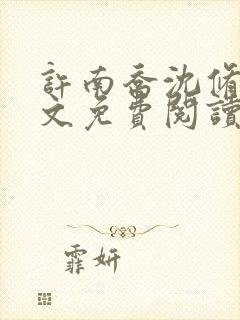 許南喬沈脩
文免費閱讀
霏妍